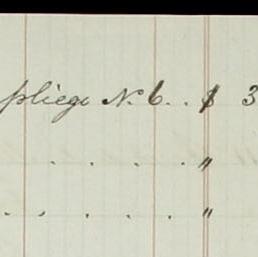 pliego N. 6. . $ 3
. . . . "
. . . . . "